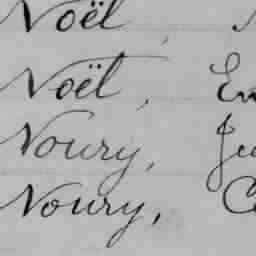 Noël,
Noël,
Noury,
Noury,